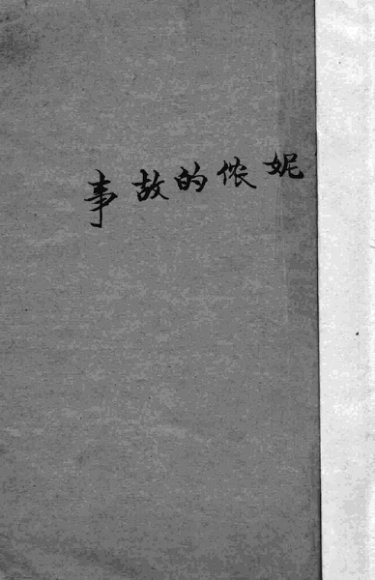 妮侬的故事